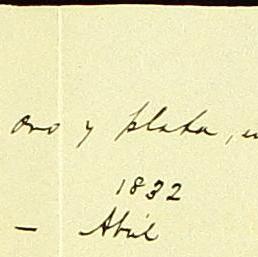 oro y plata,
1832
— Abril